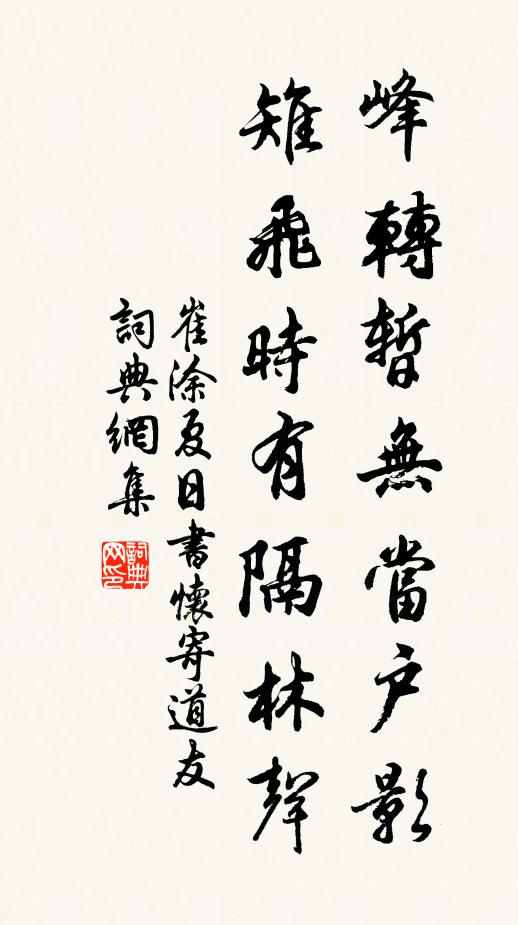 峰轉暫無當户影
雉飛時有隔林聲
崔涂夏日書懷寄道友
詞典網集
詞典网印